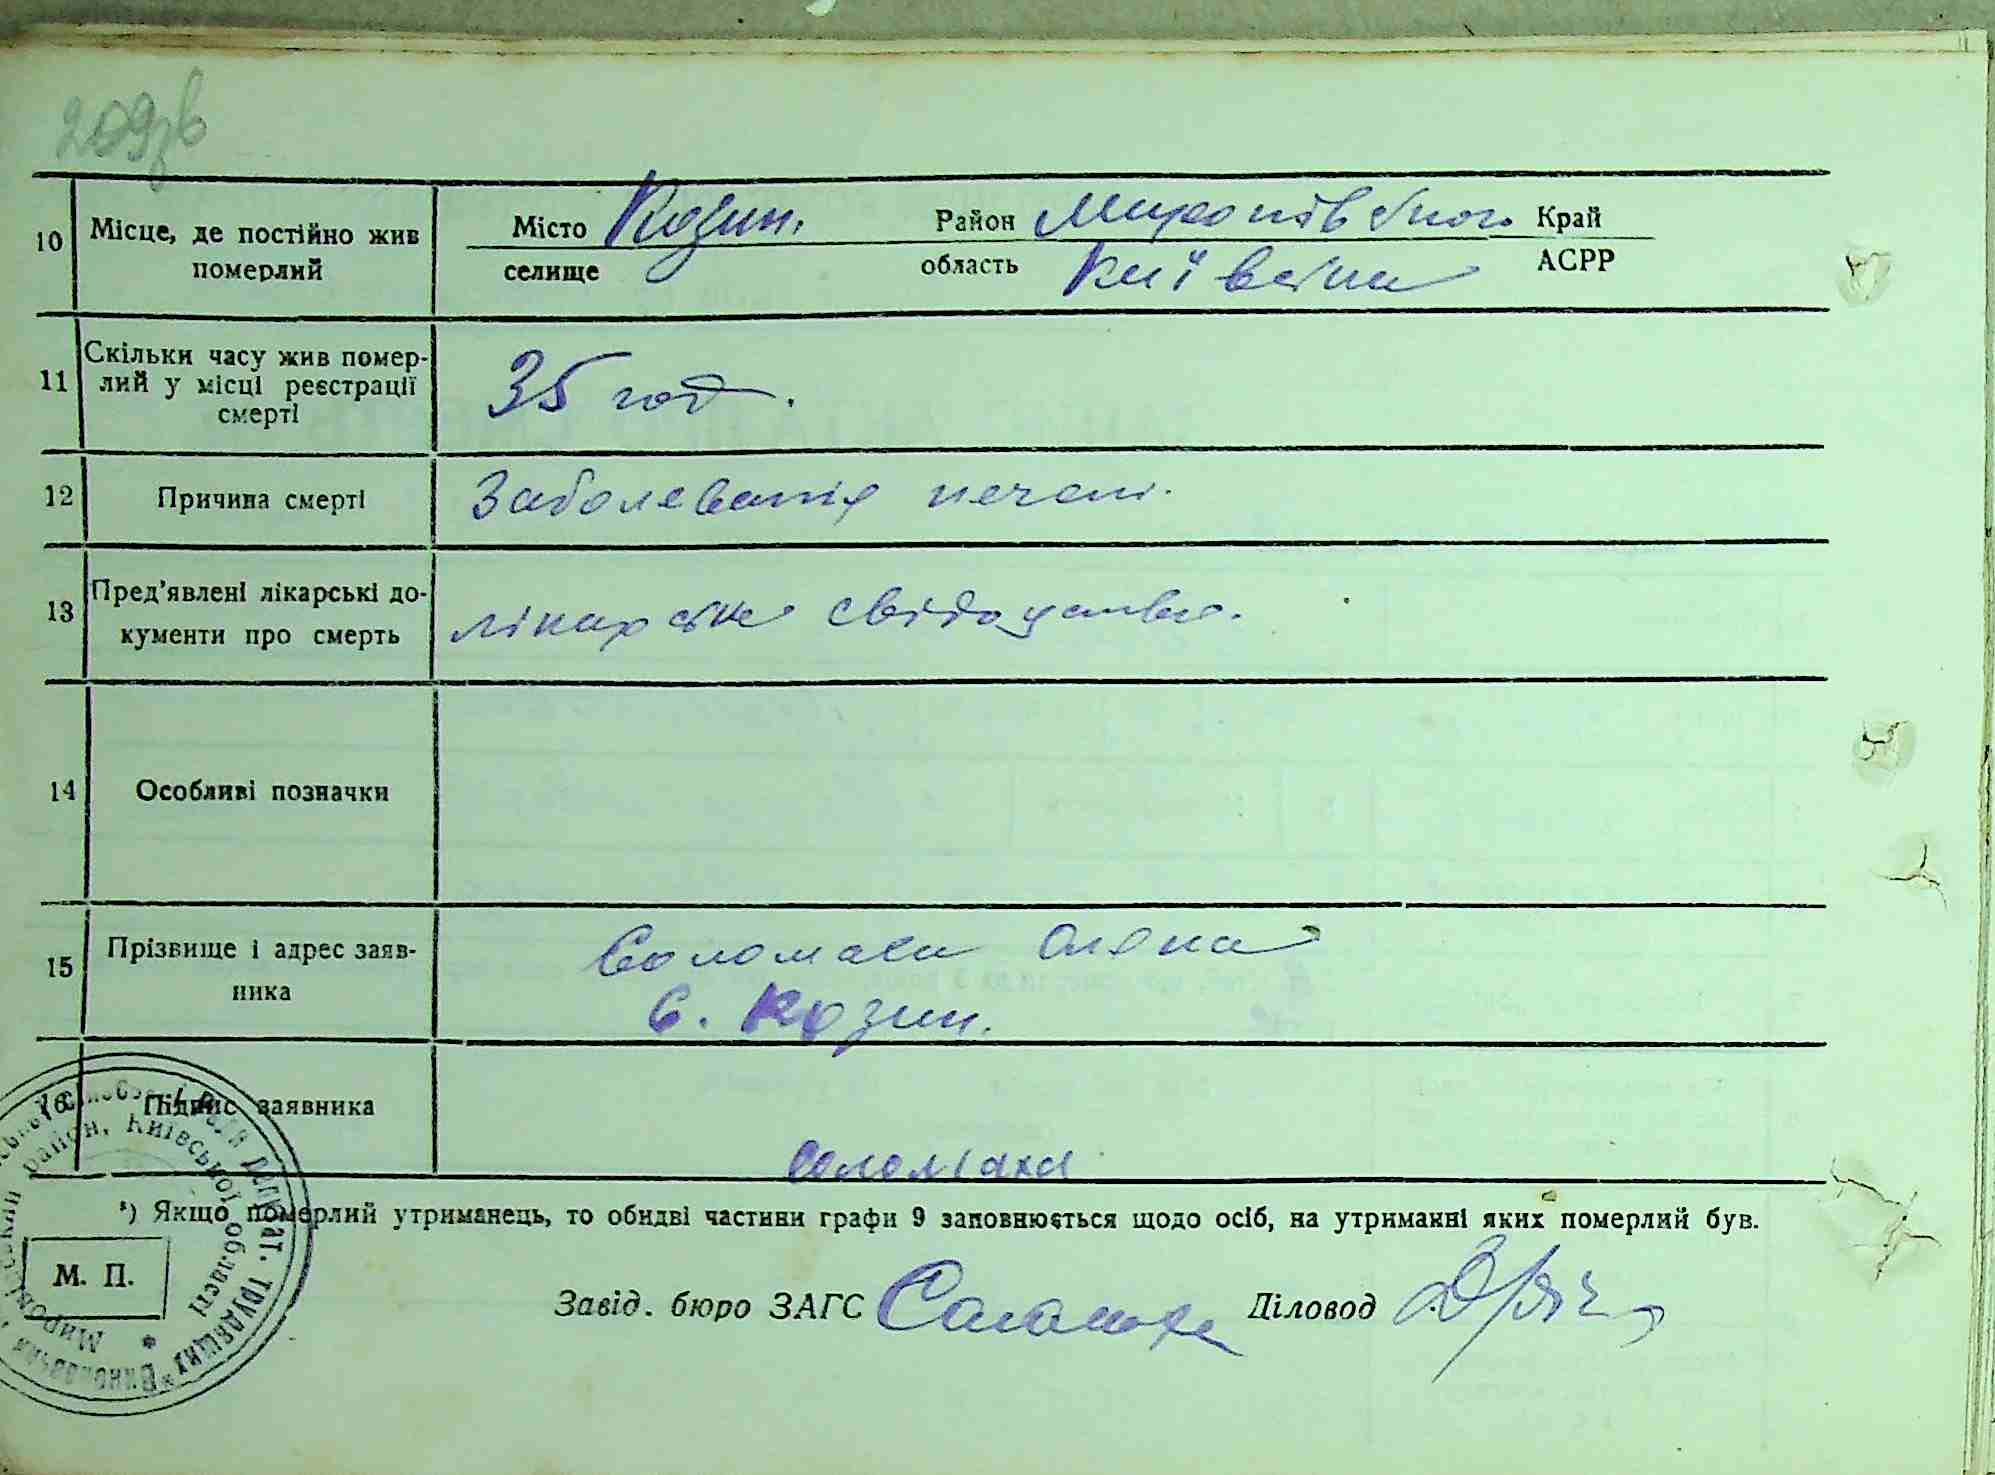 209зв
10 Місце, де постійно жив Місто Козин. Район Миропівського Край
померлий селище область Київська АСРР
11 Скільки часу жив помер-
лий у місці реєстрації
смерті
35 год.
12 Причина смерті Заболеванія печени.
13 Пред'явлені лікарські до-
кументи про смерть
лікарське свідоцтво.
14 Особливі позначки
15 Прізвище і адрес заяв-
ника
Соломаха Олена
С. Козин.
16 Підпис заявника
Соломаха
*) Якщо померлий утриманець, то обидві частини графи 9 заповнюється щодо осіб, на утриманні яких померлий був.
М. П.
Завід. бюро ЗАГС Діловод
район, Київської області
депутат. трудящих * Виконавчий